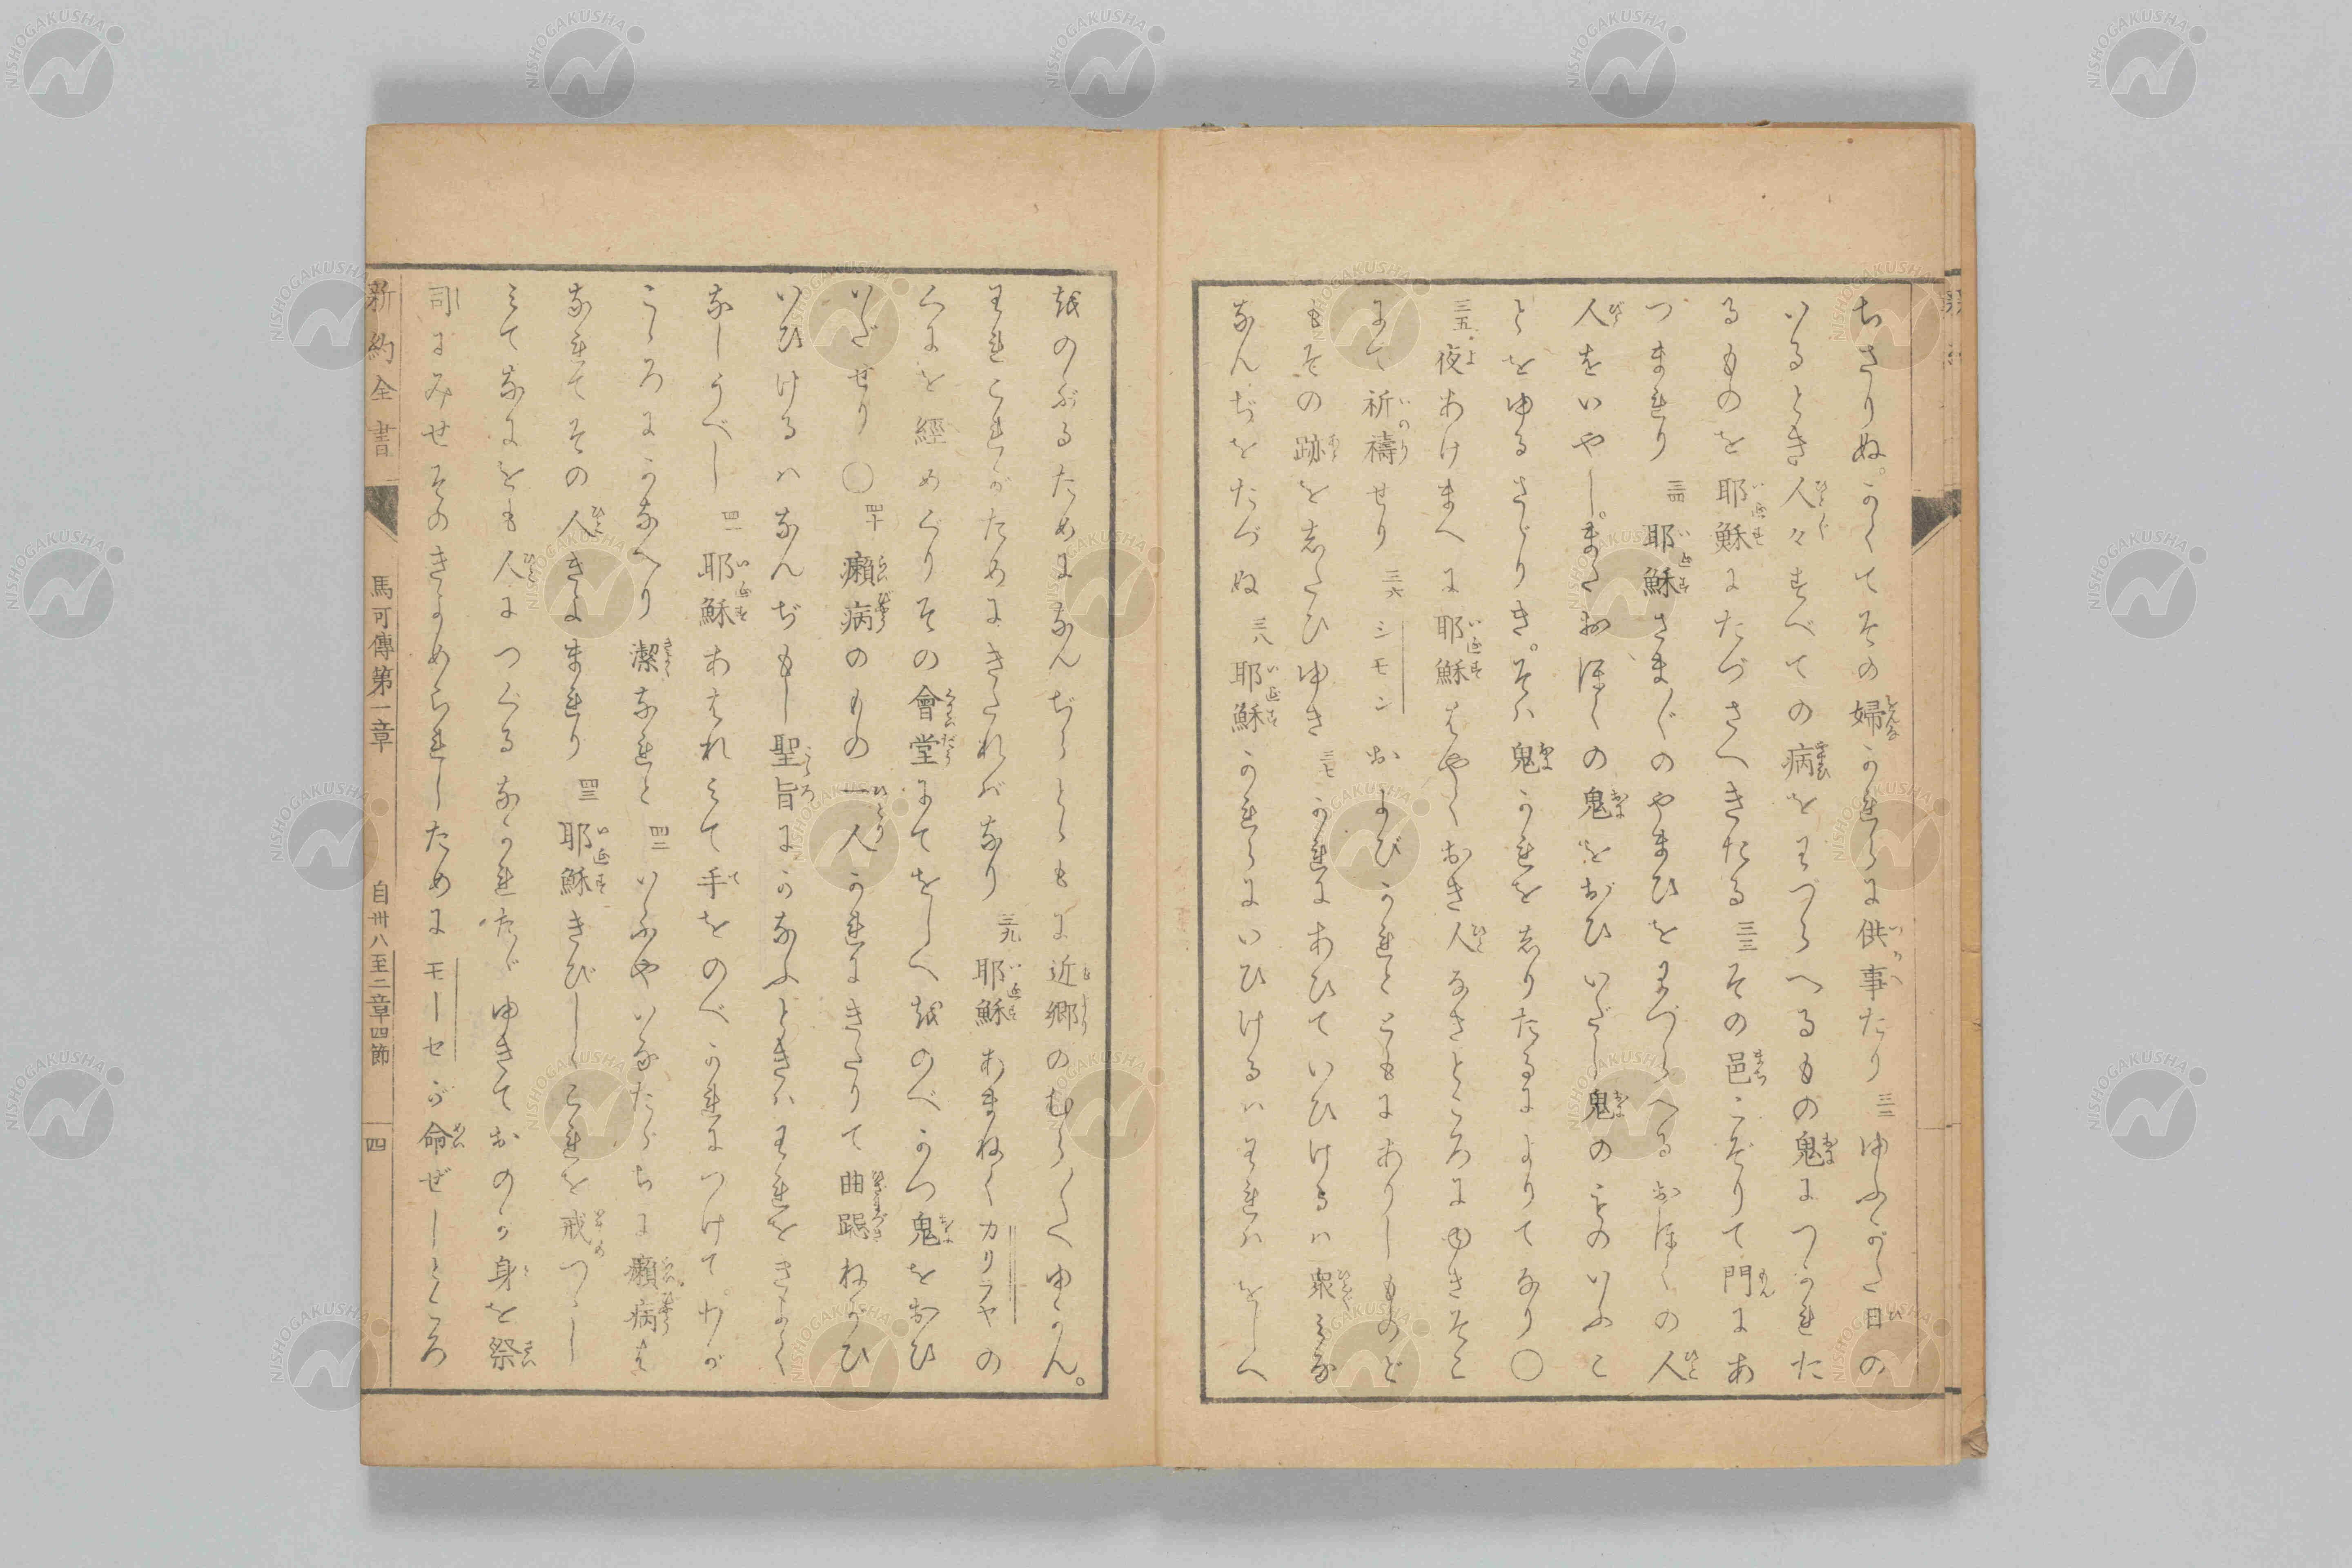 ちさりぬ。かくてその婦かれらに供事たり 三二 ゆふがた日の
いるとき人々すべての病をわづらへるもの鬼につかれた
るものを耶穌にたづさへきたる 三三 その邑こぞりて門にあ
つまれり 三四 耶穌さま〴〵のやまひをわづらへるおほくの人
人をいやし。またおほくの鬼をおひいだし鬼のものいふこ
とをゆるさゞりき。そハ鬼かれをしりたるによりてなり〇
三五 夜あけまへに耶穌はやくおき人なきところにゆきそこ
にて祈禱せり 三六 シモンおよびかれとともにありしものど
もその跡をしたひゆき 三七 かれにあひていひけるハ衆みな
なんぢをたづぬ 三八 耶穌かれらにいひけるハわれハをしへ
越のぶるためになんぢらともに近郷のむら〳〵へゆかん。
われこれがためにきたれバなり 三九 耶穌あまねくガリラヤの
くにを經めぐりその會堂にてをしへ越のべかつ鬼をおひ
いだせり〇 四十 癩病のもの一人かれにきたりて曲跽ねがひ
いひけるハなんぢもし聖旨にかなふときハわれをきよく
なしうべし 四一 耶穌あはれみて手をのべかれにつけて。わが
こゝろにかなへり潔なれと 四二 いふやいなたゞちに癩病は
なれてその人きよまれり 四三 耶穌きびしくこれを戒つかし
みてなにをも人につぐるなかれたゞゆきておのが身を祭
司にみせそのきよめられしためにモーセが命ぜしところ
新約全書 馬可傳第一章 自卅八至二章四節 四